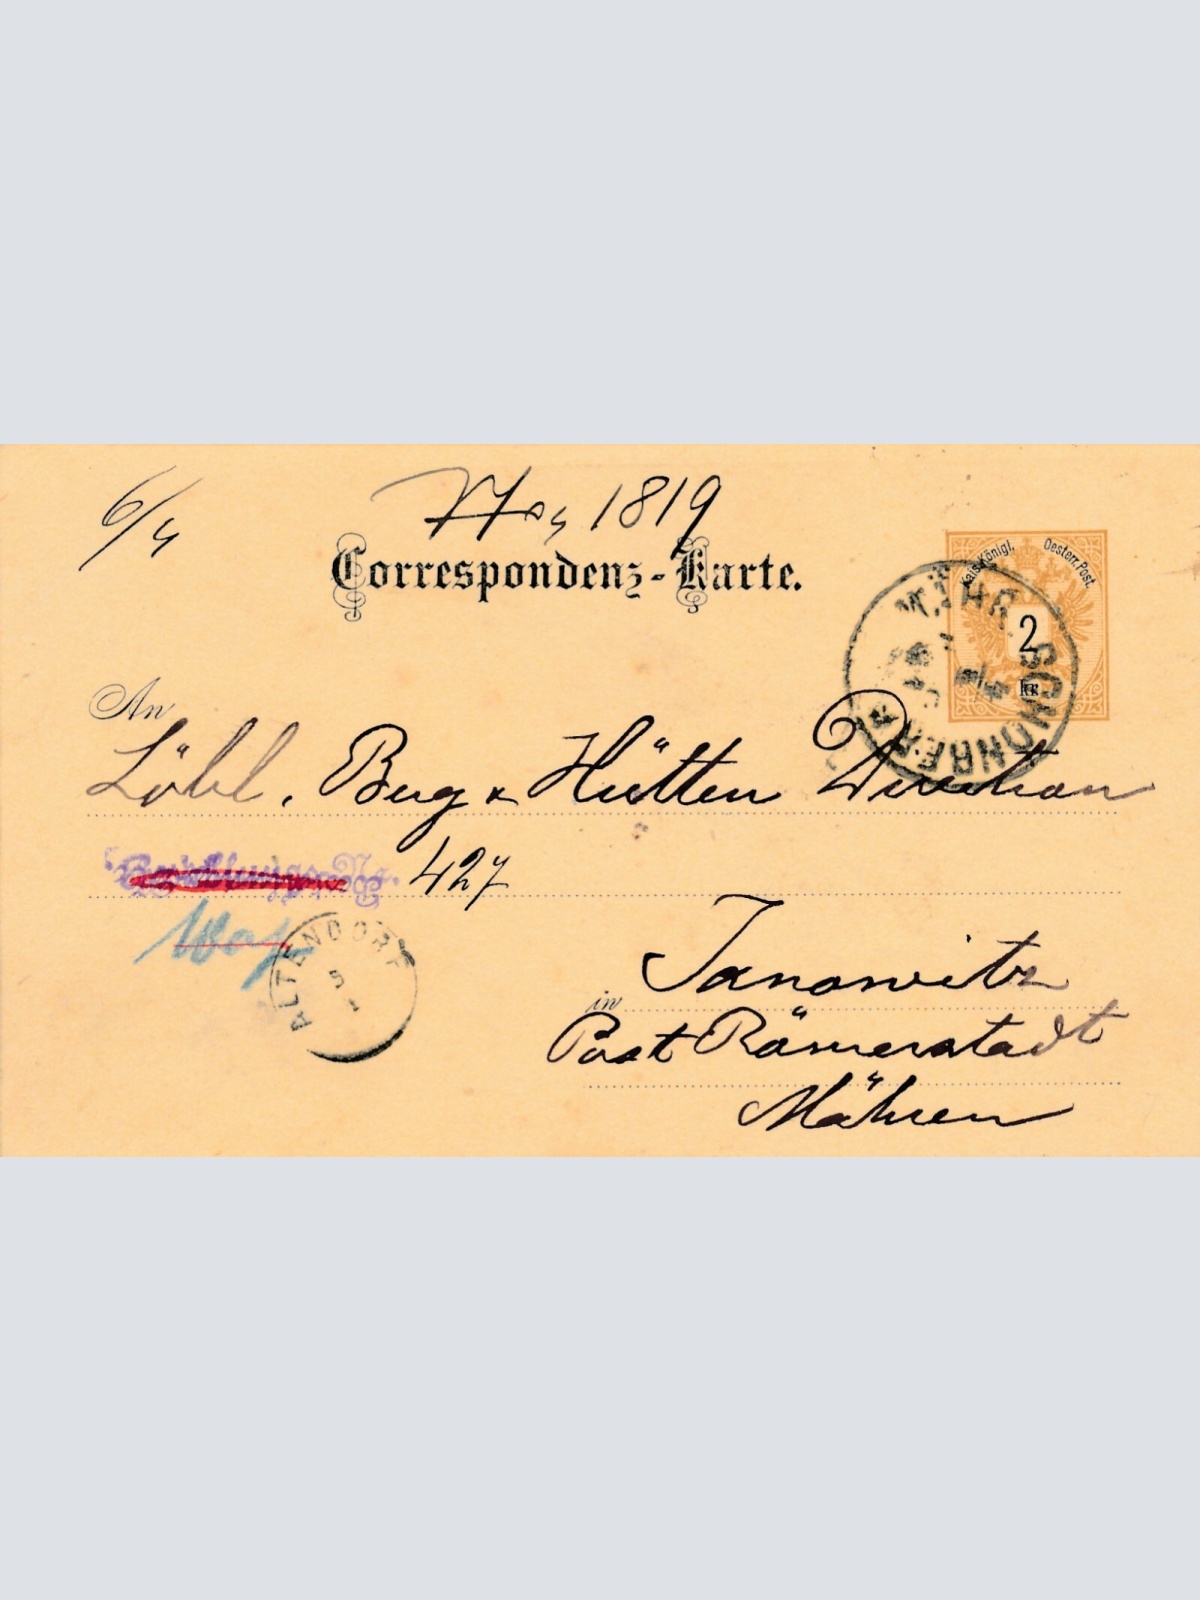 6/4
No 1819
Correspondenz-Karte.
Kais. Königl. Oesterr. Post.
2
kr.
MÄHR. SCHÖNBERG
An
Löbl. Berg & Hütten Direction
427
ALTENDORF
5
4
Janowitz
in
Post Römerstadt
Mähren